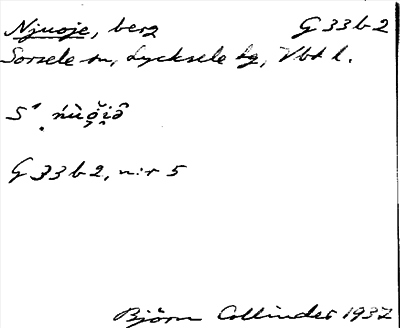 Njuoje, berg G 33 b 2
Sorsele sn, Lycksele lg, Vbt l.
G 33 b 2, n:r 5
Björn Collinder 1937